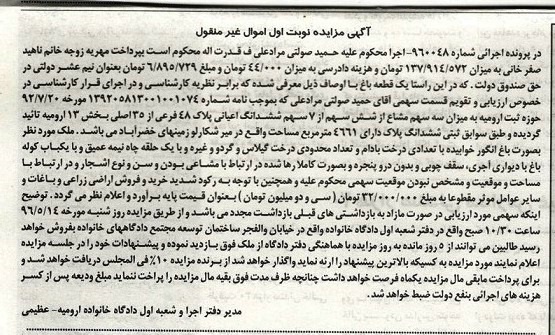 آگهی مزایده نوبت اول اموال غیر منقول
در پرونده اجرائی شماره ۹۶۰۰۴۸- اجرا محکوم علیه حمید صولتی مرادعلی ف قدرت اله محکوم است بپرداخت مهریه زوجه خانم ناهید
صفر خانی به میزان ۱۳۷/۹۱۴/۵۷۲ تومان و هزینه دادرسی به میزان ۴۴/۰۰۰ تومان و مبلغ ۶/۸۹۵/۷۲۹ تومان بعنوان نیم عشر دولتی در
حق صندوق دولت. که در این راستا یک قطعه باغ با اوصاف ذیل معرفی شده که برابر نظریه کارشناسی و در اجرای قرار کارشناسی در
خصوص ارزیابی و تقویم قسمت سهمی آقای حمید صولتی مرادعلی که بموجب نامه شماره ۱۳۹۲۰۵۸۱۳۰۰۱۰۰۱۰۷۴ مورخه ۹۲/۷/۲۰
حوزه ثبت ارومیه به میزان سه سهم مشاع از شش سهم از ۷ سهم ششدانگ اعیانی پلاک ۴۸ فرعی از ۳۵ اصلی بخش ۱۳ ارومیه تائید
گردیده و طبق سوابق ثبتی ششدانگ پلاک دارای ۴۶۶۱ مترمربع مساحت واقع در میر شکارلو زمینهای خضرآباد می باشد. ملک مورد نظر
بصورت باغ انگور خوابیده با تعدادی درخت بادام و تعداد محدودی درخت گیلاس و گردو و غیره و با یک حلقه چاه نیمه عمیق و با یکباب کوله
باغ با دیواری آجری، سقف چوبی و بدون درو پنجره و بصورت کاملا رها شده در ارتباط با مشاعی بودن و سن و نوع اشجار و در ارتباط با
مساحت و موقعیت و مشخص نبودن موقعیت سهمی محکوم علیه و همچنین با توجه به رکود شدید خرید و فروش اراضی زراعی و باغات و
سایر عوامل موثر مقطوعا به مبلغ ۳۲/۰۰۰/۰۰۰ تومان (سی و دو میلیون تومان) بعنوان قیمت پایه برآورد و اعلام نظر می گردد. توضیح
اینکه سهمی مورد ارزیابی در صورت مازاد به بازداشتی های قبلی بازداشت مجدد می باشد و از طریق مزایده روز شنبه مورخه ۹۶/۵/۱۴
ساعت ۱۰/۳۰ صبح واقع در دفتر شعبه اول دادگاه خانواده واقع در خیابان والفجر ساختمان توسعه مجتمع دادگاههای خانواده بفروش خواهد
رسید طالبین می توانند از ۵ روز مانده به روز مزایده با هماهنگی دفتر دادگاه از ملک فوق بازدید نموده و پیشنهادات خود را در جلسه مزایده
اعلام نمایند مورد مزایده به کسیکه بالاترین پیشنهاد را ارئه نماید واگذار خواهد شد از برنده مزایده ۱۰٪ فی المجلس دریافت خواهد شد و
برای پرداخت مابقی مال مزایده یکماه فرصت خواهد داشت چنانچه ظرف مدت فوق بقیه مال مزایده را پراخت ننماید مبلغ ودیعه پس از کسر
هزینه های اجرائی بنفع دولت ضبط خواهد شد.
مدیر دفتر اجرا و شعبه اول دادگاه خانواده ارومیه- عظیمی